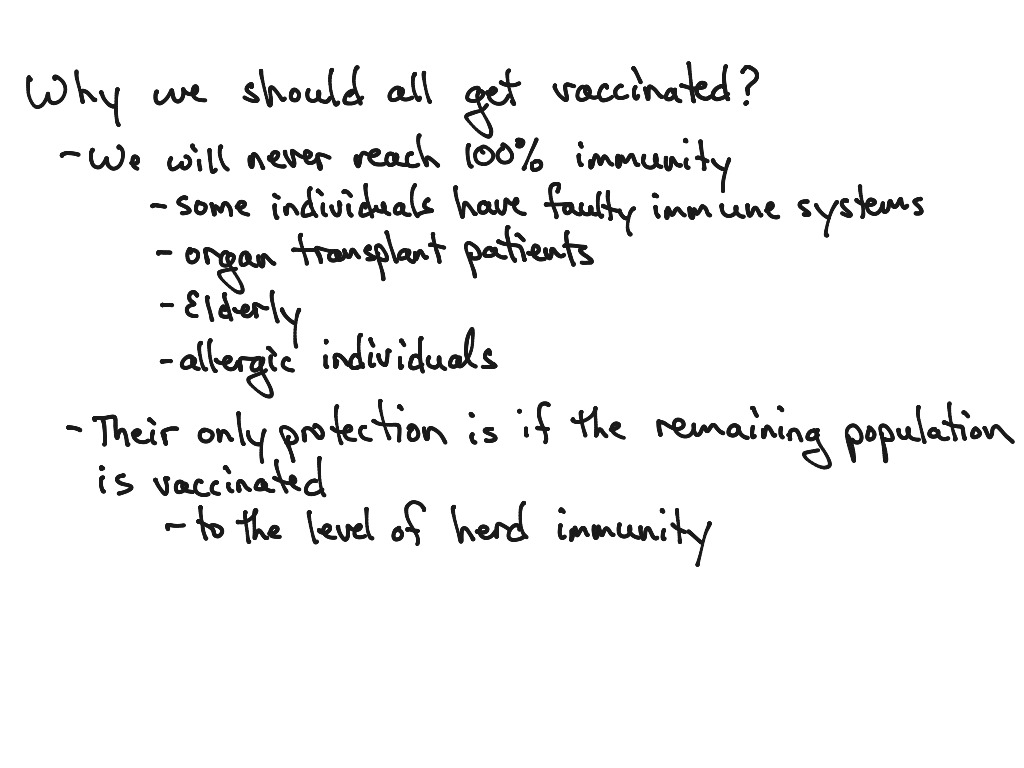 Why we should all get vaccinated?
- We will never reach 100% immunity
- some individuals have faulty immune systems
- organ transplant patients
- Elderly
- allergic individuals
- Their only protection is if the remaining population
is vaccinated
- to the level of herd immunity